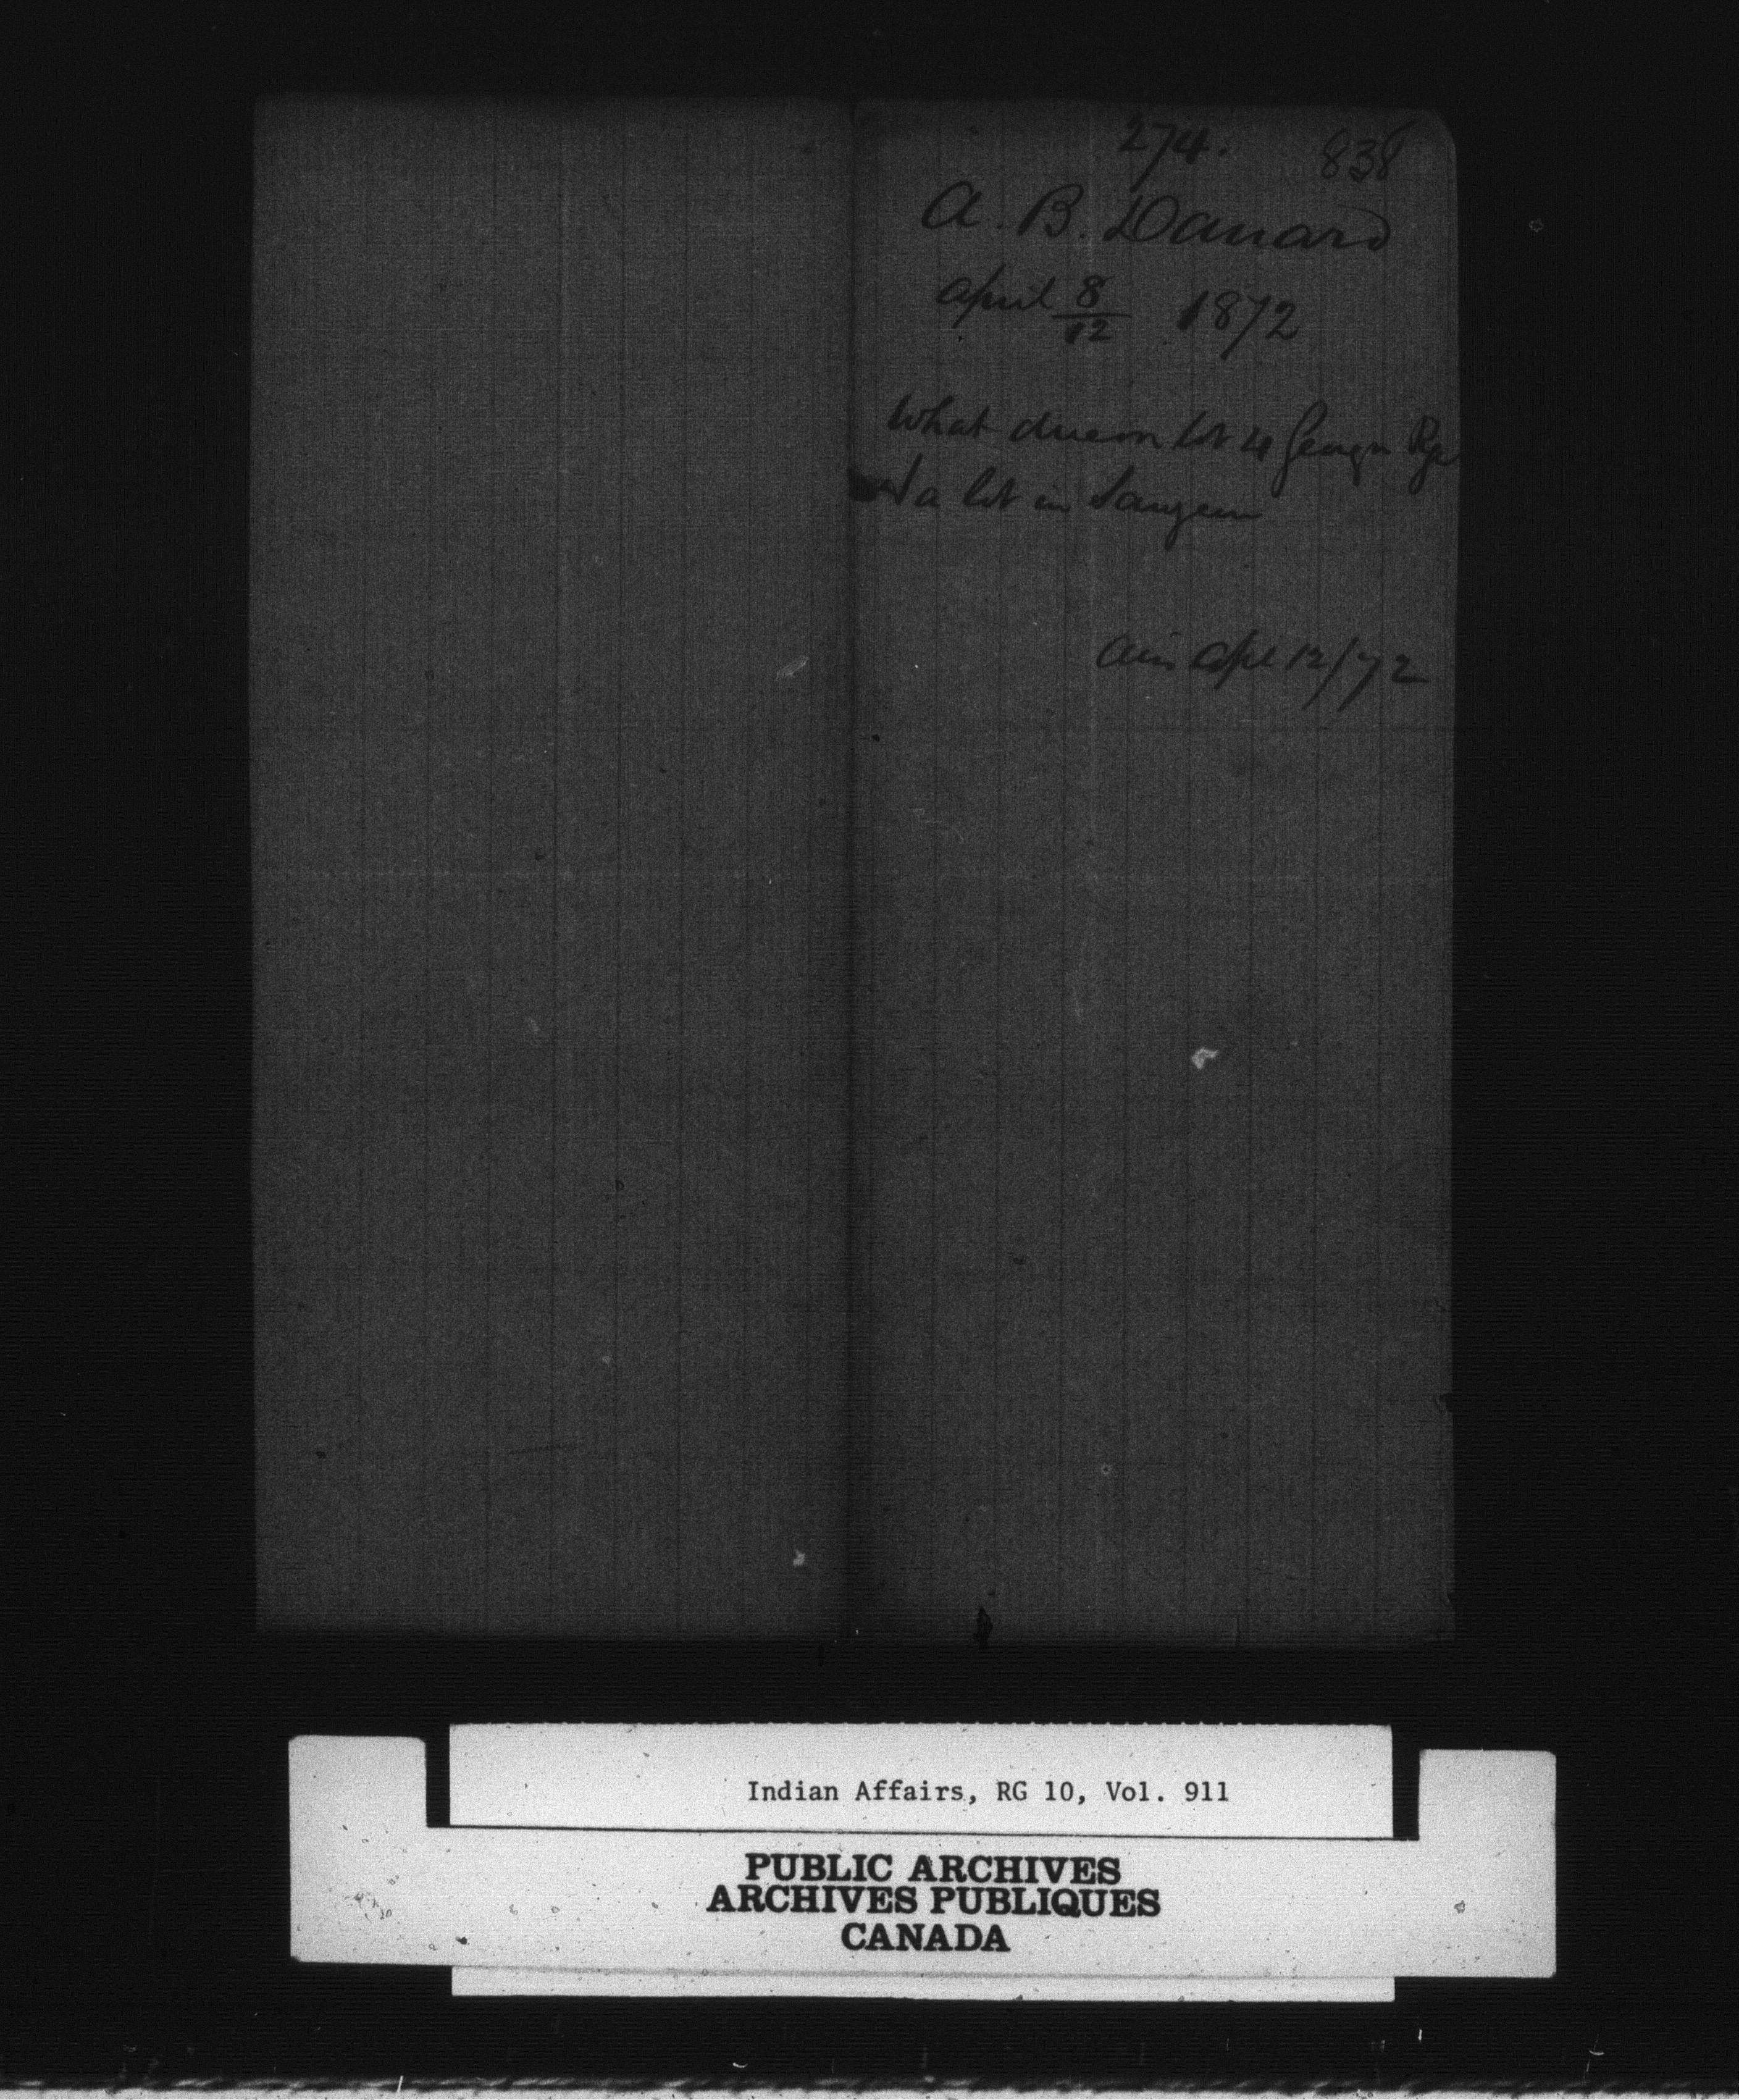 274. 838
A. B. Danard
April 8/12 1872
What due on lot 4 Rge
a lot in Saugeen
Ans Apl 12/72
Indian Affairs, RG 10, Vol. 911
PUBLIC ARCHIVES
ARCHIVES PUBLIQUES
CANADA